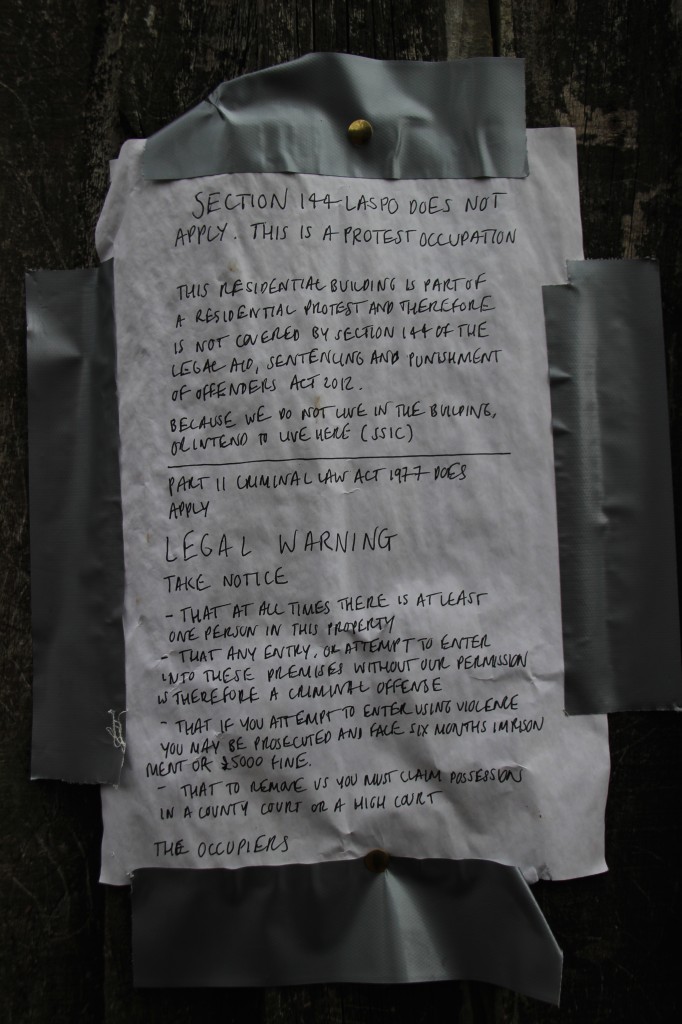 SECTION 144 LASPO DOES NOT
APPLY. THIS IS A PROTEST OCCUPATION
THIS RESIDENTIAL BUILDING IS PART OF
A RESIDENTIAL PROTEST AND THEREFORE
IS NOT COVERED BY SECTION 144 OF THE
LEGAL AID, SENTENCING AND PUNISHMENT
OF OFFENDERS ACT 2012.
BECAUSE WE DO NOT LIVE IN THE BUILDING,
OR INTEND TO LIVE HERE (SSIC)
PART II CRIMINAL LAW ACT 1977 DOES
APPLY
LEGAL WARNING
TAKE NOTICE
- THAT AT ALL TIMES THERE IS AT LEAST
ONE PERSON IN THIS PROPERTY
- THAT ANY ENTRY, OR ATTEMPT TO ENTER
INTO THESE PREMISES WITHOUT OUR PERMISSION
IS THEREFORE A CRIMINAL OFFENSE
- THAT IF YOU ATTEMPT TO ENTER USING VIOLENCE
YOU MAY BE PROSECUTED AND FACE SIX MONTHS IMRISON
MENT OR £5000 FINE.
- THAT TO REMOVE US YOU MUST CLAIM POSSESSION
IN A COUNTY COURT OR A HIGH COURT
THE OCCUPIERS